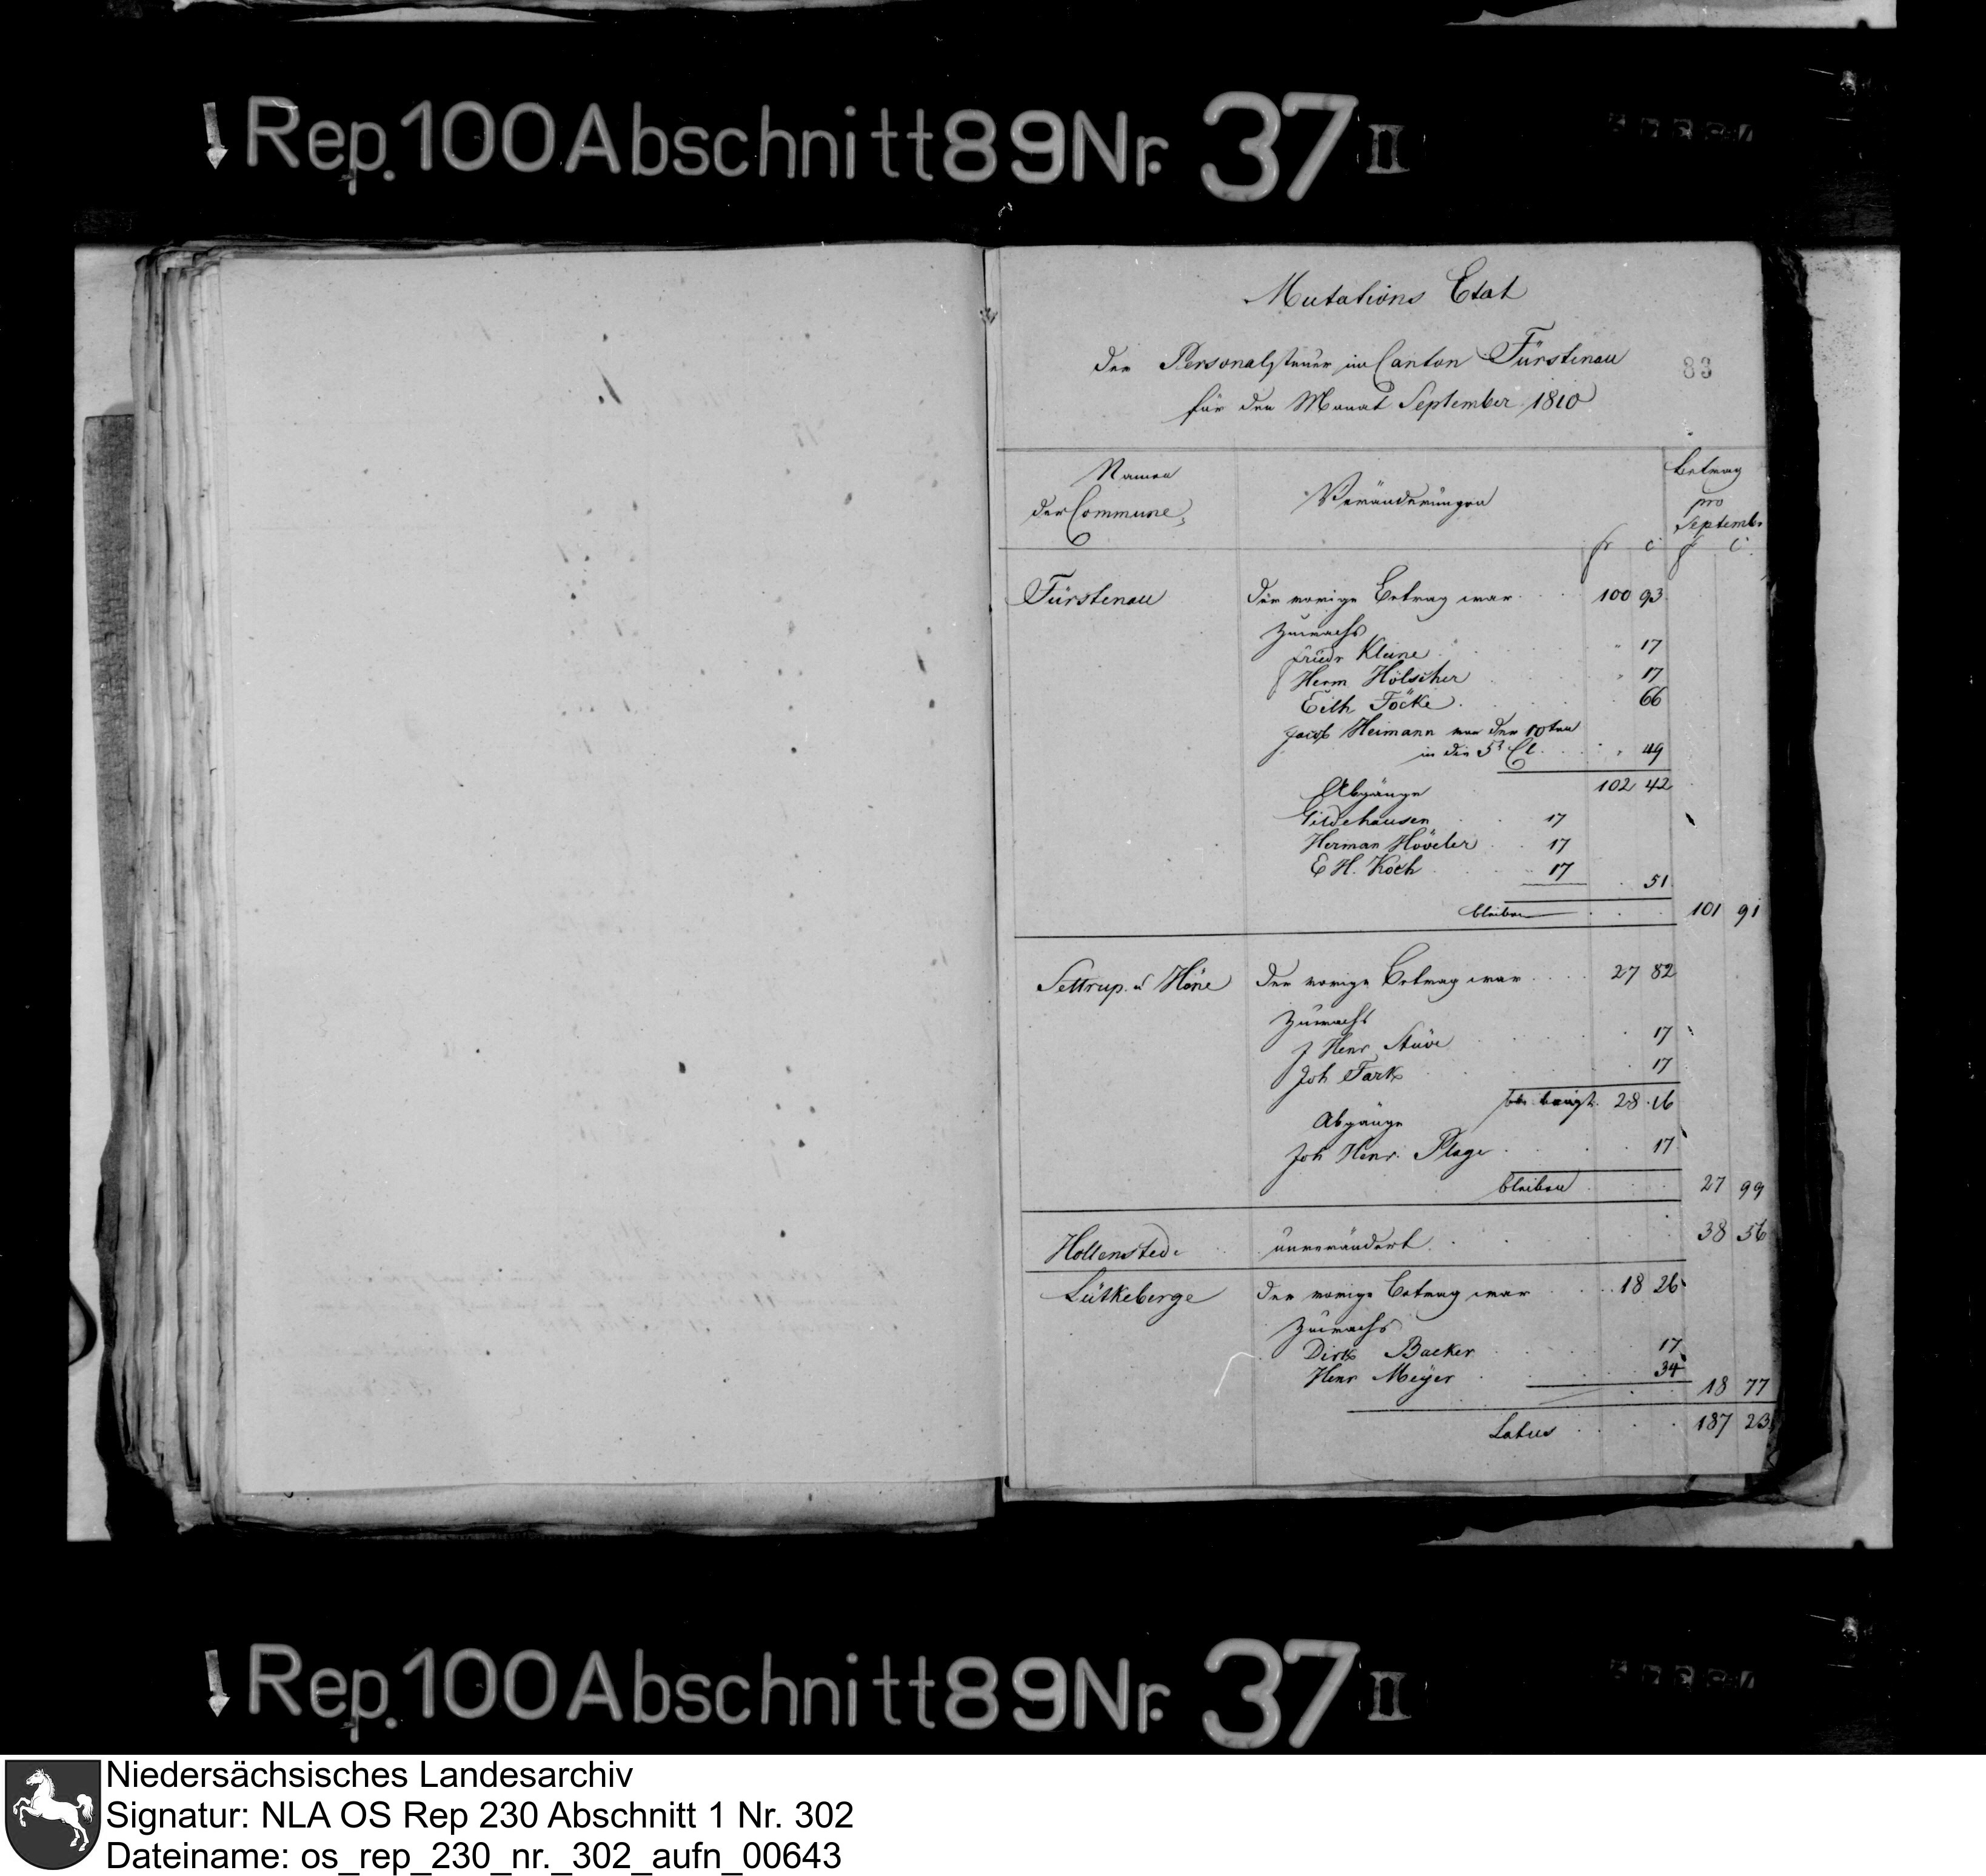 Rep. 100 Abschnitt 89 Nr. 37 II
Mutations Etat
der Personalsteuer im Canton Fürstenau
für den Monat September 1810
83
Namen
der Commune
Veränderungen
fr c
Betrag
pro
Septembr
fr c
Fürstenau Der vorige Betrag war 100 93
Zuwachs
Friedr Kleine 17
Herm Hölscher 17
Eilh Föcke 66
Jacob Heimann von der 10ten
in die 5t Cl. 49
102 42
Abgänge
Gildehausen 17
Herman Höveler 17
E H. Koch 17 51
bleiben 101 91
Settrup u Höne Der vorige Betrag war 27 82
Zuwachs
J Henr Stüve 17
Joh Fark 17
28 16
Abgänge
Joh Henr. Plage 17
bleiben 27 99
Hollenstede unverändert 38 56
Lütkeberge Der vorige Betrag war 18 26
Zuwachs
Dirk Backer 17
Henr Meÿer 34
18 77
Latus 187 23
Rep. 100 Abschnitt 89 Nr. 37 II
Niedersächsisches Landesarchiv
Signatur: NLA OS Rep 230 Abschnitt 1 Nr. 302
Dateiname: os_rep_230_nr._302_aufn_00643